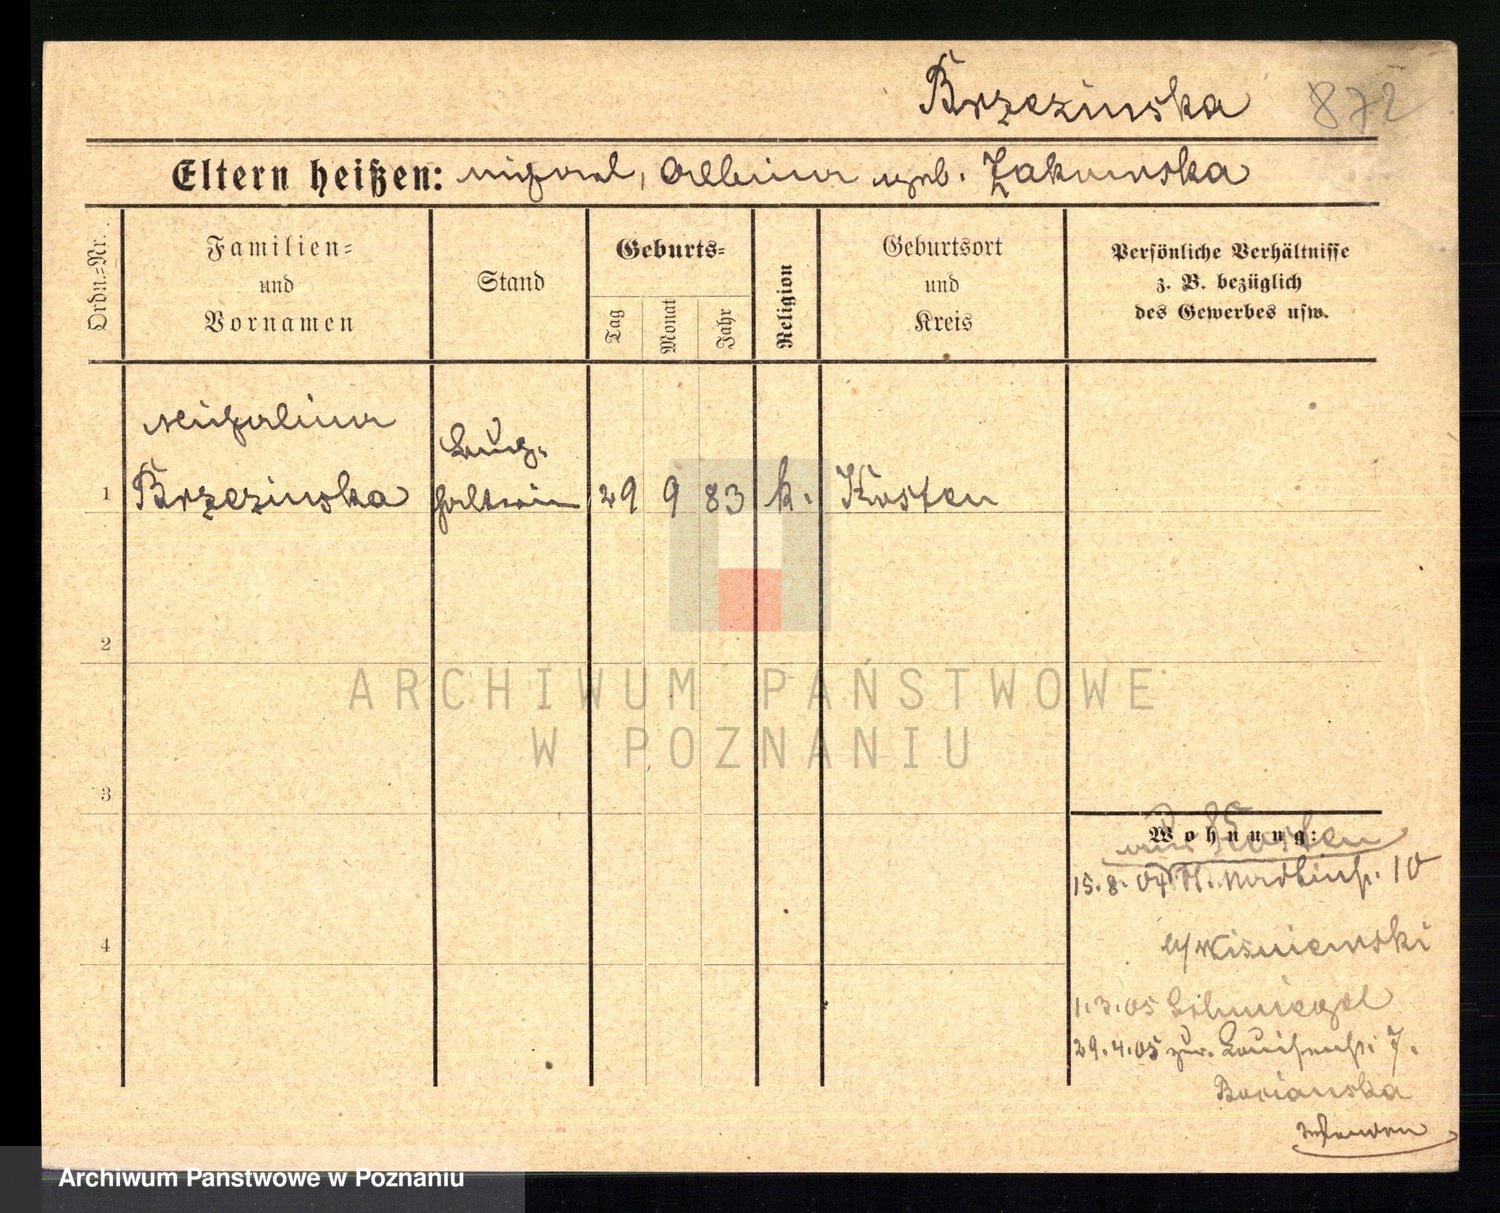 Brzezinska 872
Eltern heißen: Michael, Albina geb. Zakowska
Ordn.=Nr.
Familien=
und
Vornamen
Stand
Geburts=
Tag
Monat
Jahr
Religion
Geburtsort
und
Kreis
Persönliche Verhältnisse
z. B. bezüglich
des Gewerbes usw.
Michalina
1 Brzezinska
Buch=
halterin
29 9 83 k. Kosten
2
3
4
Wohnung:
aus Kosten
15.8.04 10
b/Wisniewski
1.3.05 Schmiegel
29.4.05 zur. Louisenstr. 7.
Bocianska
ARCHIWUM PAŃSTWOWE
W POZNANIU
Archiwum Państwowe w Poznaniu